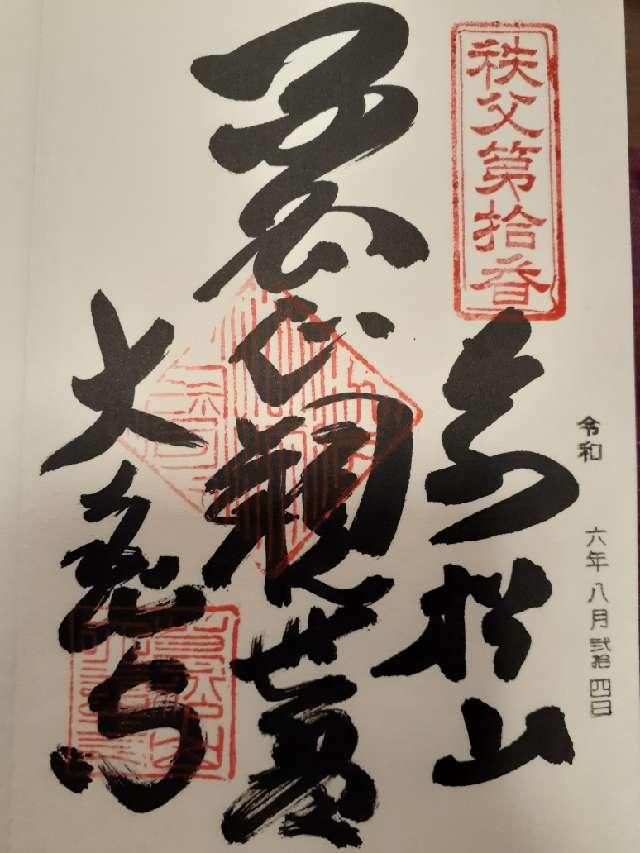 秩父第拾番
萬松山
觀世音
大慈寺
令和 六年八月弐拾四日